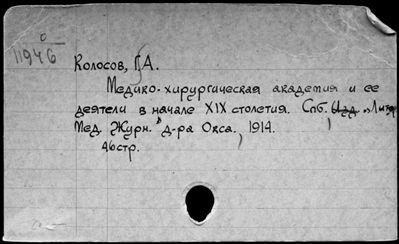 11946
Колосов, Г.А.
Медико-хирургическая академия и ее
деятели в начале XIX столетия. Спб. Изд. "Литер.
Мед. Журн." д-ра Окса. 1914.
46стр.